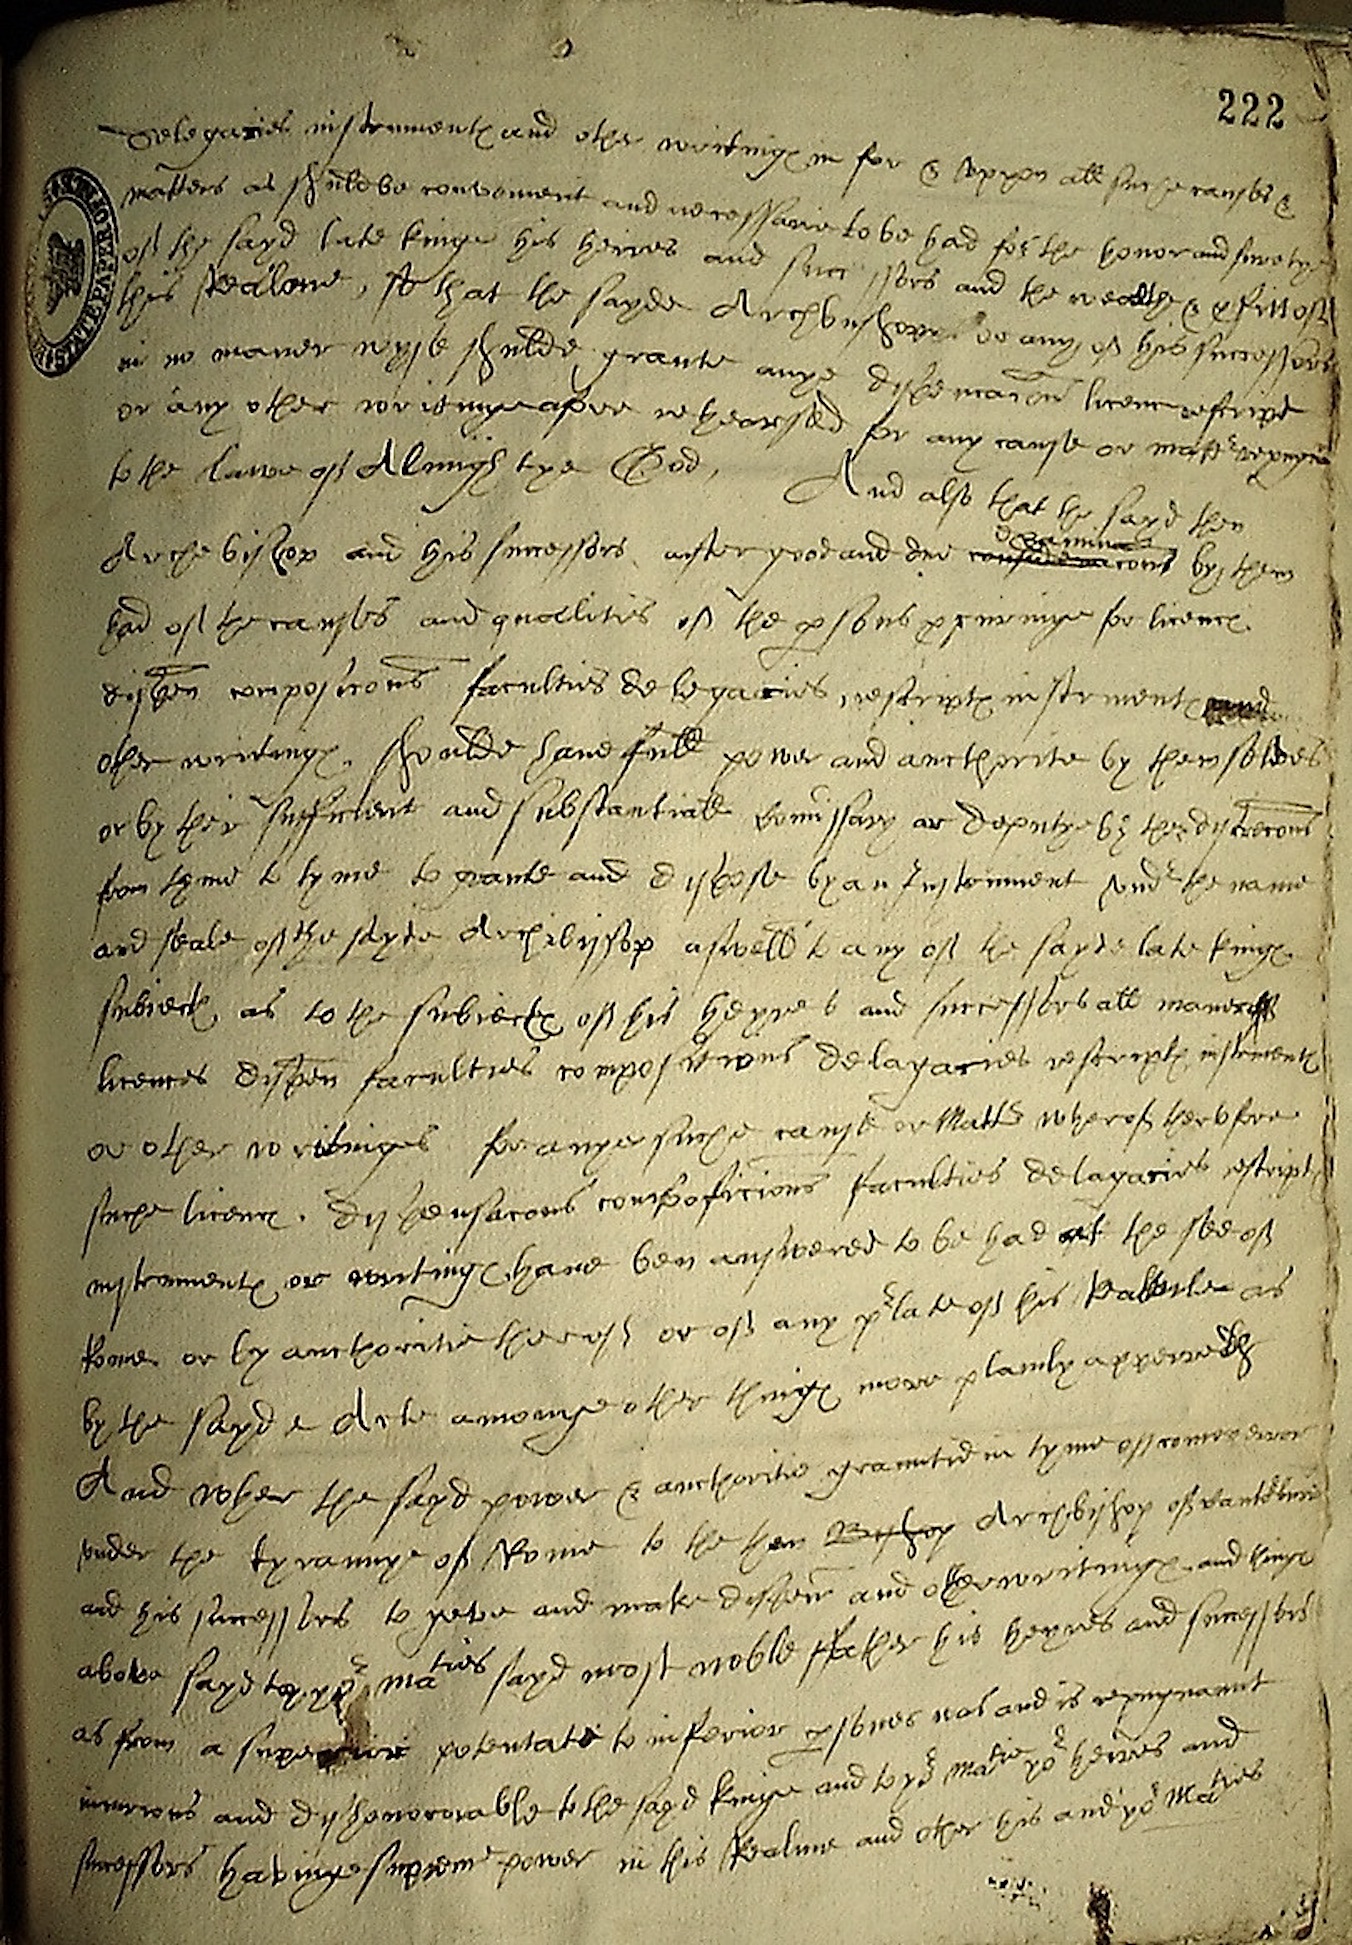 222
delegacies instrumentes and other writinges in for & uppon all suche causes &
matters as shulde be convenient and necessarie to be had for the honor and suretye
off the sayd late kinge his heires and successors and the wealthe & profitt off
this Realme, so that the sayde Archbushoppe or any off his successors
in no maner wyse shulde graunte anye dispencacon licence rescript
or any other writinge afore rehearsed for any cause or matter repugn
to the Lawe off Almightye God, And also that the sayd then
Archebishop and his successors after good and due examinacon by them
had off the causes and qualities off the persons procuringe for licences
dispen composicons faculties delegacies, rescriptes instrumentes and
other writinges. shoulde have full power and aucthorite by themselves
or by ther sufficient and substantiall Comissary or deputye by ther discrecons
from tyme to tyme to graunte and dyspose by an Instrument under the name
and seale off the sayde Archibysshop aswell to any off the sayde late kinges
subiectes as to the subiectes off his heyres and successors all maner off
licences dispen faculties composicions delagacies rescriptes, instrumentes
or other writinges for anye suche cause or Matter wheroff therbfore
suche licences. dyspensacons composicions faculties delagacies rescriptes
instrumentes or writinges have ben answered to be had att the see off
Rome or by aucthoritie theroff or off any prelate off his Realme as
by the sayde Acte amonge other thinges more plainly apperethe
And wher the sayd power & aucthoritie graunted in tyme off some error
under the tyrannye off Rome to the then Bishop Archbishop off Canterburie
and his successors to yeve and make dispen and other writinges and thinges
above sayd to yor maties sayd most noble ffather his heyres and successors
as from a superior potentate to inferior persones was and is repugnaunt
iniurious and dyshonorable to the sayd kinge and to yor matie yor heires and
successors havinge supreme power in this Realme and other his and yor Maties